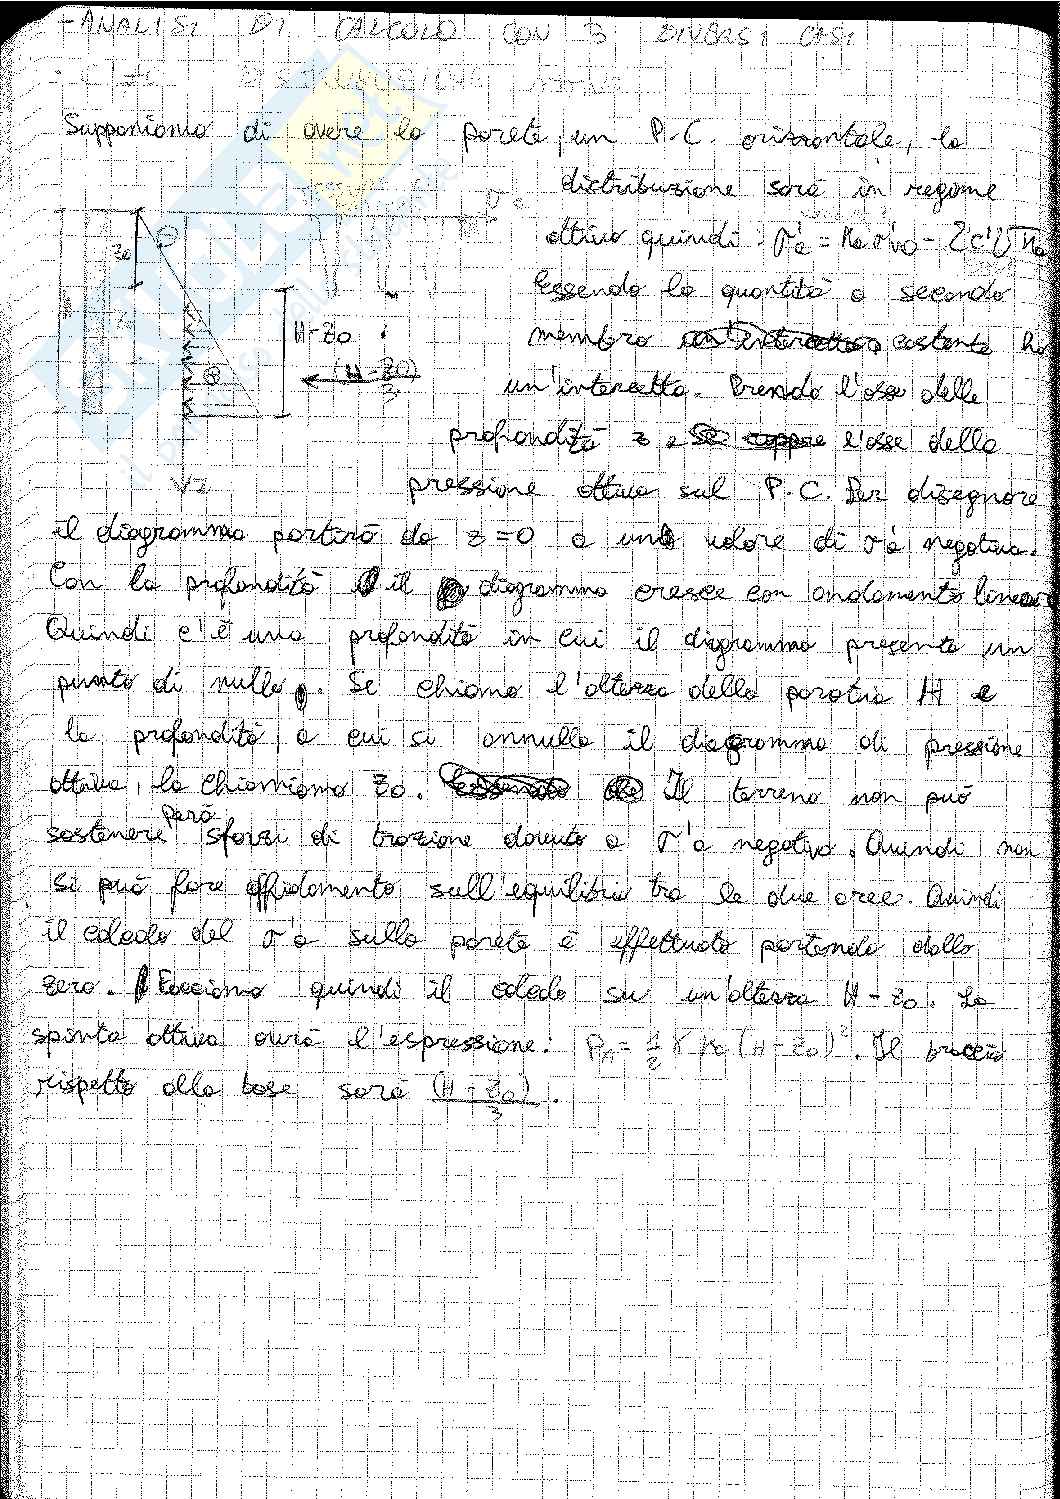 -ANALISI DI CALCOLO CON 3 DIVERSI CASI
Supponiamo di avere la parete, un P.C. orizzontale, la
distribuzione sarà in regime
attivo quindi: σ'a = Ka σ'v0 - 2c'√Ka
Essendo la quantità a secondo
membro costante ho
un'intercetta. Prendo l'asse delle
profondità z e l'asse della
pressione attiva sul P.C. Per disegnare
il diagramma partirò da z=0 a un valore di σ'a negativa.
Con la profondità il diagramma cresce con andamento lineare
Quindi c'è una profondità in cui il diagramma presenta un
punto di nullo. Se chiamo l'altezza della paratia H e
la profondità, a cui si annulla il diagramma di pressione
attiva, la chiamiamo z0. Il terreno non può
però
sostenere sforzi di trazione dovuto a σ'a negativa. Quindi non
si può fare affidamento sull'equilibrio tra le due aree. Quindi
il calcolo del σ'a sulla parete è effettuato partendo dallo
zero. Facciamo quindi il calcolo su un'altezza H-z0. La
spinta attiva avrà l'espressione: PA = 1/2 γ Ka (H-z0)². Il braccio
rispetto alla base sarà (H-z0)/3.
z0
H-z0
(H-z0)/3
z